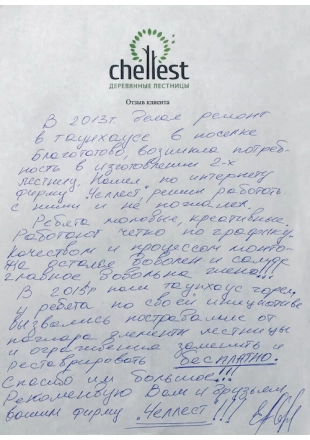 chellest
ДЕРЕВЯННЫЕ ЛЕСТНИЦЫ
Отзыв клиента
В 2013г. делая ремонт
в таунхаусе в поселке
Благотатово, возникла потреб-
ность в изготовлении 2-х
лестниц. Нашел по интернету
фирму "Челлест", решил работать
с ними и не пожалел.
Ребята молодые, креативные.
Работают четко по графику.
Качеством и процессом монта-
жа остался доволен и самое
главное довольна жена!!!
В 2018г наш таунхаус горел,
и ребята по своей инициативе
вызвались пострадавшие от
пожара элементы лестницы
и ограждения заменить и
реставрировать БЕСПЛАТНО.
Спасибо им большое!!!
Рекомендую Вам и друзьям
вашим фирму "Челлест"!!!